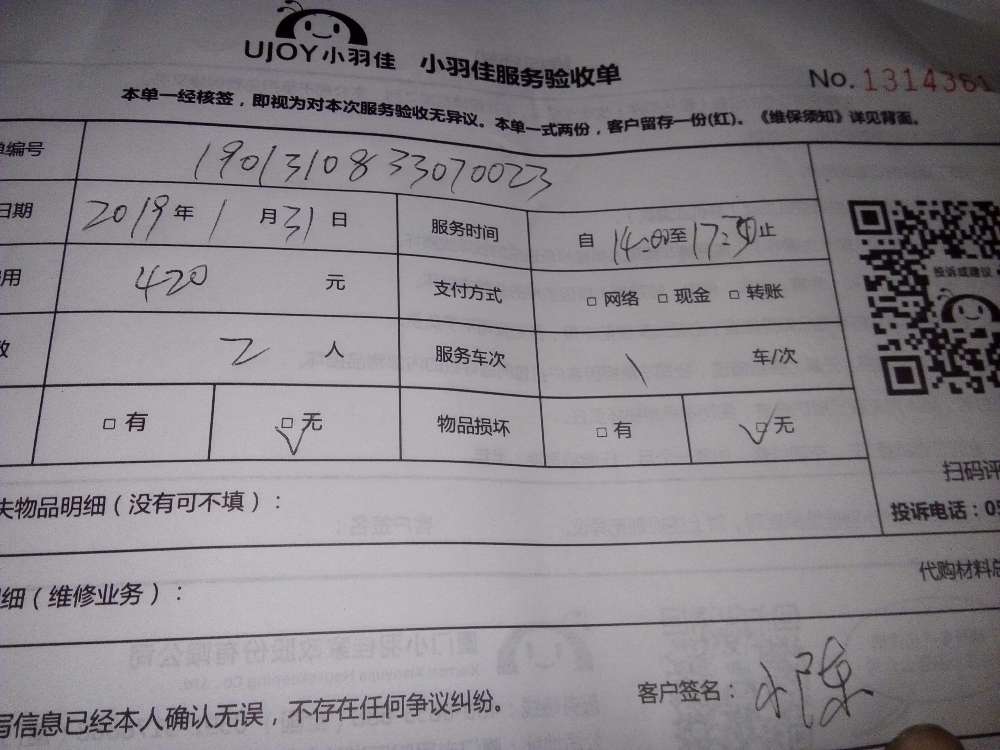 UJOY小羽佳 小羽佳服务验收单 No.
本单一经核签，即视为对本次服务验收无异议。本单一式两份，客户留存一份(红)。《维保须知》详见背面。
单编号 190131083307 0023
日期 2019年1月31日 服务时间 自14:00至17: 止
用 420 元 支付方式 □网络 □现金 □转账
数 2 人 服务车次 1 车/次
□有 □无 物品损坏 □有 □无
投诉或建议
扫码评
失物品明细（没有可不填）：
投诉电话：05
代购材料总
细（维修业务）：
客户签名：小陈
写信息已经本人确认无误，不存在任何争议纠纷。
厦门小羽佳家政股份有限公司
客户签名：